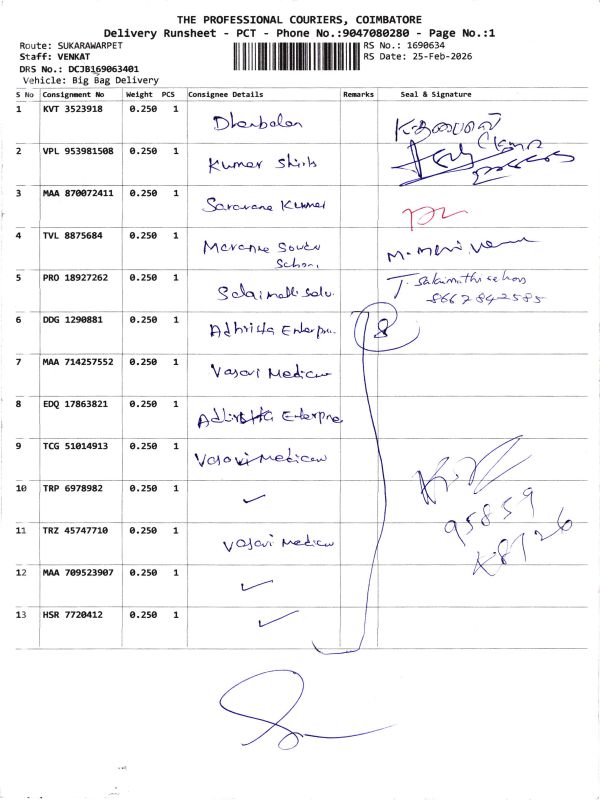 THE PROFESSIONAL COURIERS, COIMBATORE
Delivery Runsheet - PCT - Phone No.:9047080280 - Page No.:1
Route: SUKARAWARPET
RS No.: 1690634
Staff: VENKAT
RS Date: 25-Feb-2026
DRS No.: DCJB169063401
Vehicle: Big Bag Delivery
S No Consignment No Weight PCS Consignee Details Remarks Seal & Signature
1 KVT 3523918 0.250 1
2 VPL 953981508 0.250 1 Kumar
3 MAA 870072411 0.250 1 Saravana Kumar
4 TVL 8875684 0.250 1
5 PRO 18927262 0.250 1
8667842585
6 DDG 1290881 0.250 1 8
7 MAA 714257552 0.250 1 Vasavi Medicaw
8 EDQ 17863821 0.250 1
9 TCG 51014913 0.250 1 Vasavi Medicaw
10 TRP 6978982 0.250 1 ✓
95859
11 TRZ 45747710 0.250 1 Vasavi Medicaw
12 MAA 709523907 0.250 1 ✓
13 HSR 7720412 0.250 1 ✓